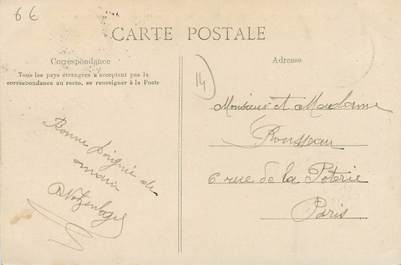 66
CARTE POSTALE
Correspondance
Tous les pays étrangers n'acceptant pas la
correspondance au recto, se renseigner à la Poste
Bonne poignée de
main
Adresse
14
Monsieur et Madame
Rousseau
6 rue de la Poterie
Paris